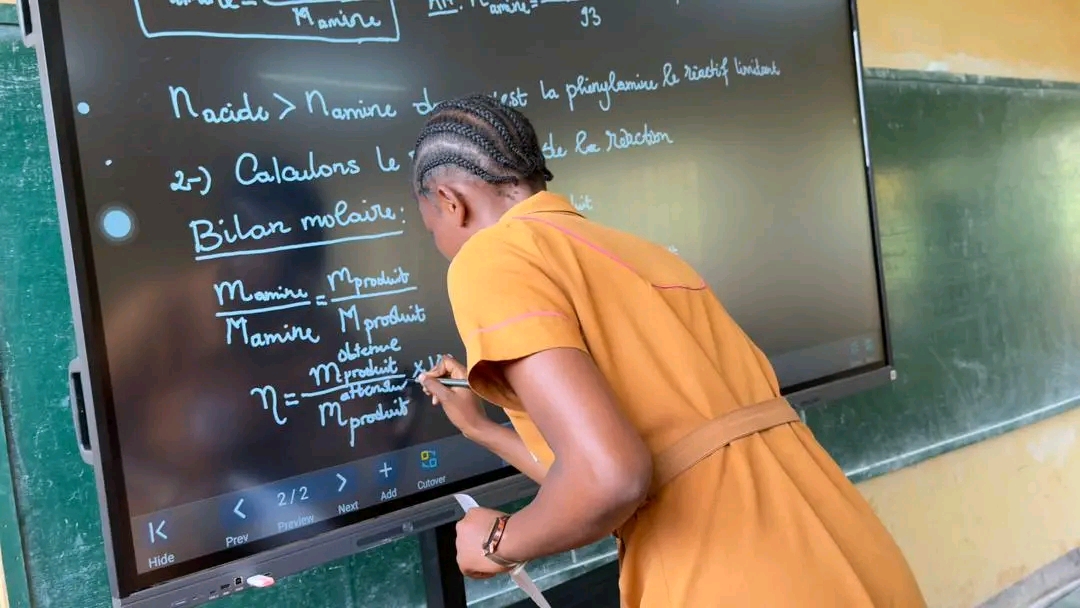 M amine
AN: n amine =
93
n acide > n amine donc c'est la phénylamine le réactif limitant
2-) Calculons le de la réaction
Bilan molaire:
m amine = m produit
M amine M produit
η = m produit obtenue ×
m produit attendu
Hide
Prev
2/2
Preview
Next
Add
Cutover